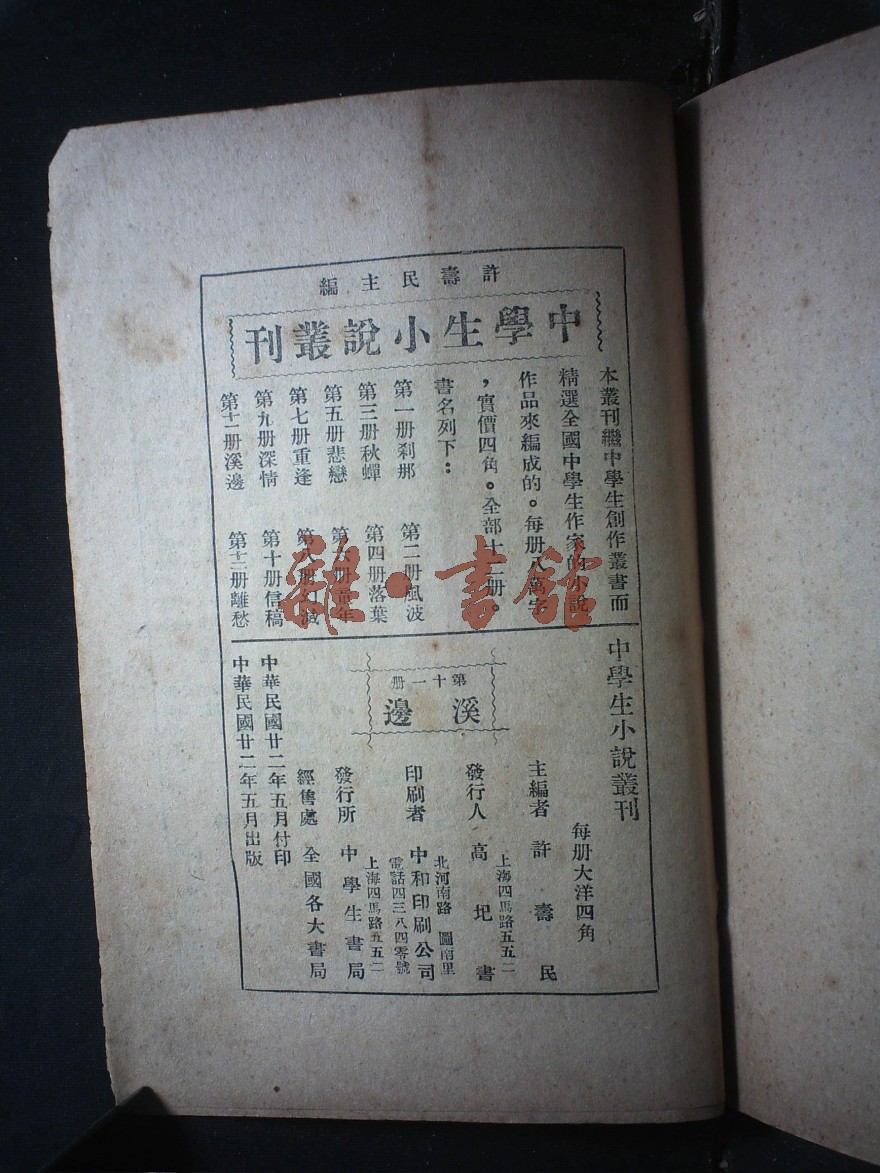 許壽民主編
中學生小說叢刊
本叢刊繼中學生創作叢書而
精選全國中學生作家的小說
作品來編成的。每册八萬字
，實價四角。全部十二册。
書名列下：
第一册剎那　第二册風波
第三册秋蟬　第四册落葉
第五册悲戀　第六册童年
第七册重逢　第八册幻滅
第九册深情　第十册信稿
第十一册溪邊　第十二册離愁
中學生小說叢刊
每册大洋四角
第十一册
溪邊
主編者　許壽民
上海四馬路五五二
發行人　高圯書
北河南路　圖南里
印刷者　中和印刷公司
電話四三八四零號
上海四馬路五五二
發行所　中學生書局
經售處　全國各大書局
中華民國廿二年五月付印
中華民國廿二年五月出版
雜·書館